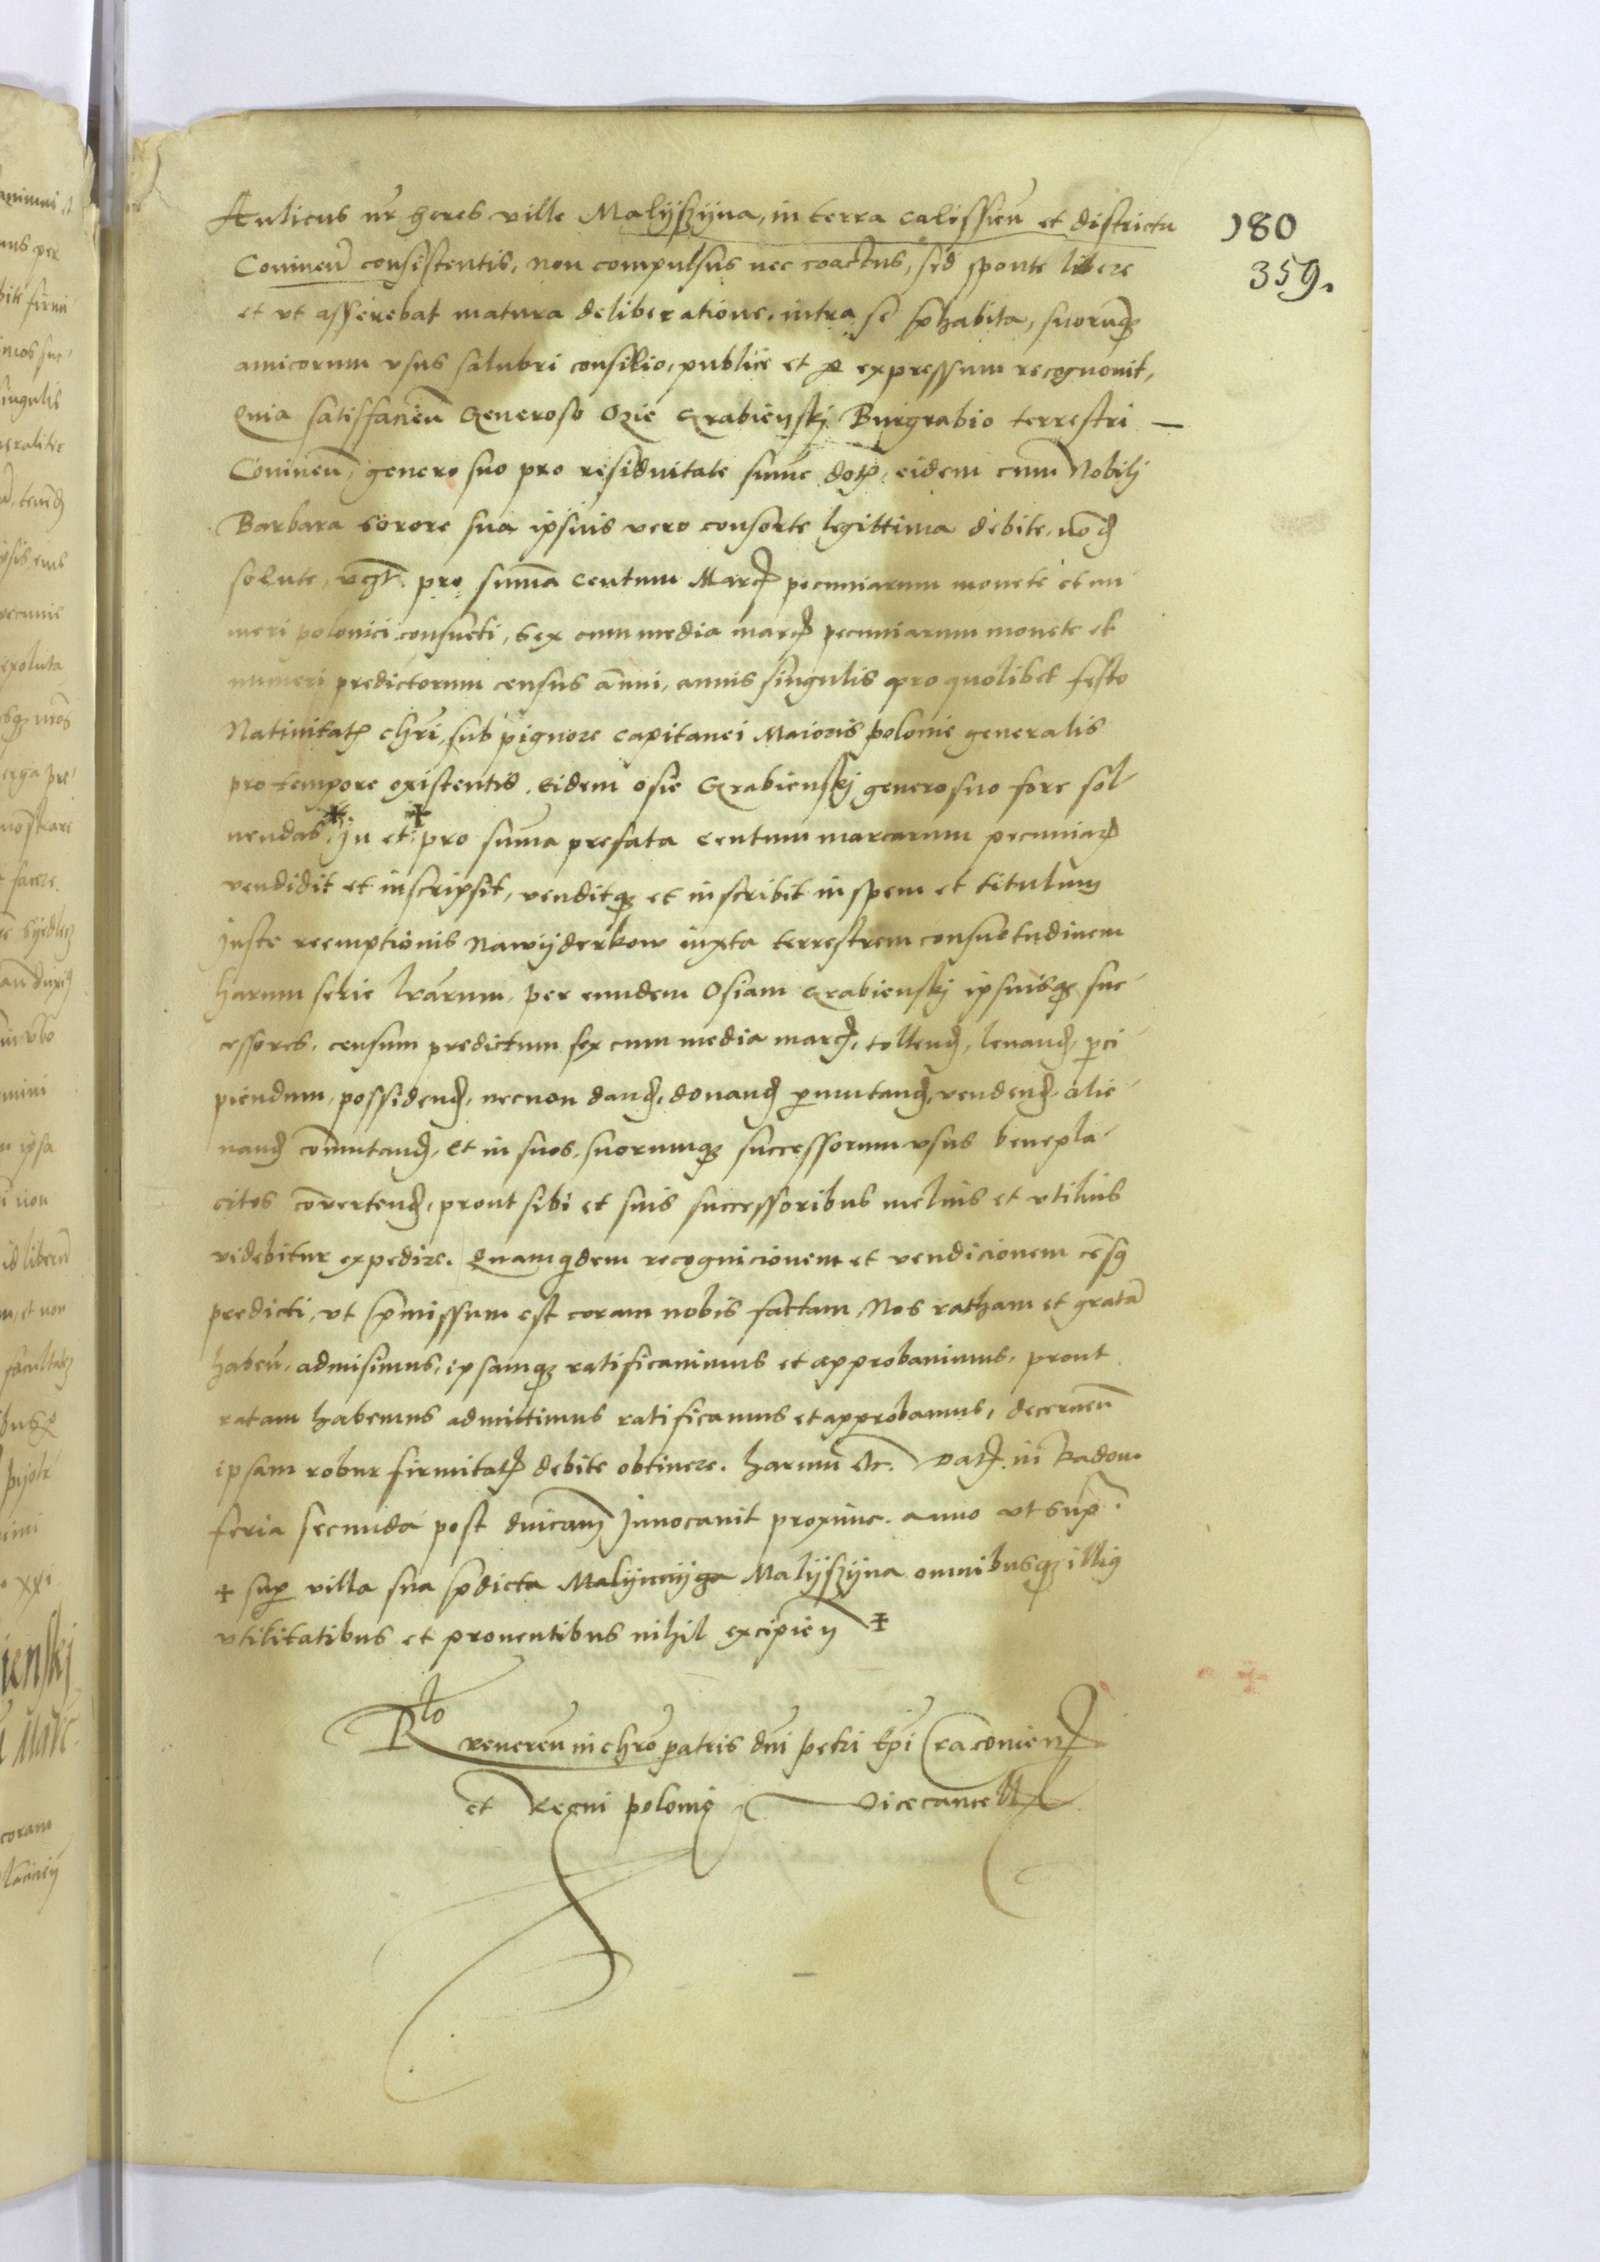 Aulicus nr̃ heres ville Malÿszÿna, in terra calissieñ et districtu
180
Conineñ consistentis, non compulsus nec coactus, sed sponte libere
359.
et vt asserebat matura deliberatione, intra se p̃habita, suorumq3
amicorum vsus salubri consilio, publice et p expressum recognouit,
Quia satisfacieñ Generoso Ozie Grabienskj Burgrabio terrestri —
Conineñ, genero suo pro residuitate sum̃e dot̃, eidem cum Nobilj
Barbara sorore sua ipsius vero consorte legittima debite, nond̃
solute, vz̃. pro sum̃a centum Marc̃ pecuniarum monete et nu
meri polonici consueti, sex cum media marc̃ pecuniarum monete et
numeri predictorum census añui, annis singulis pro quolibet festo
Natiuitat̃ chr̃i, sub pignore capitanei Maioris polonie generalis
pro tempore existentis, eidem Osie Grabienskj genero suo fore sol-
uendas, In et pro sum̃a prefata centum marcarum pecuniar̃
vendidit et inscripsit, venditq3 et inscribit in spem et titulum
juste reemptionis Nawÿderkow iuxta terrestrem consuetudinem
harum serie l̃rarum, per eundem Osiam Grabienskj ipsiusq3 suc-
cessores, censum predictum sex cum media marc̃, tollend̃, leuand̃, p̱ci
piendum, possidend̃, necnon dand̃, donand̃ p̱mutand̃, vendend̃ alie-
nand̃ com̃utand̃, et in suos, suorumq3 successorum vsus benepla-
citos cõuertend̃, prout sibi et suis successoribus melius et vtilius
videbitur expedire. Quamq̃dem recognicionem et vendicionem cẽsq
predicti, vt p̃missum est coram nobis factam, Nos ratham et gratã
habeñ, admisimus, ipsamq3 ratificauimus et approbauimus, prout
ratam habemus admittimus ratificamus et approbamus, decerneñ
ipsam robur firmitat̃ debite obtinere. harum etc. Dat̃ in Radom
feria secunda post dnĩcam Inuocauit proxime. anno vt sup̃.
+ sup̱ villa sua p̃dicta Malÿnnÿga Malÿszÿna omnibusq3 illiq
vtilitatibus et prouentibus nihil excipieñ +
Rlo
reuereñ in chr̃o patris dñi petri Ep̃i Cracouieñ
et Regni polonie Vicecancell̃